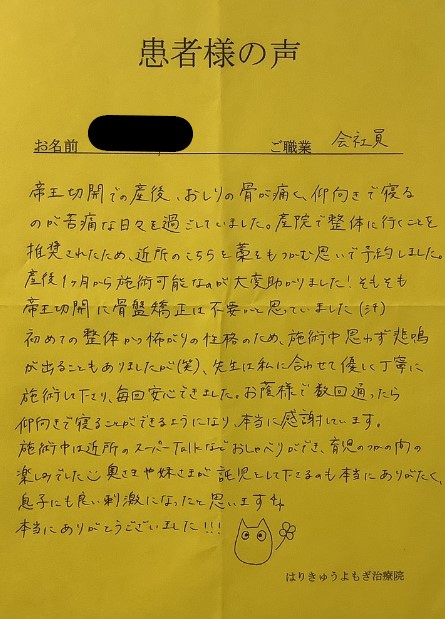 患者様の声
お名前
ご職業 会社員
帝王切開での産後、おしりの骨が痛く、仰向きで寝る
のが苦痛な日々を過ごしていました。産院で整体に行くことを
推奨されたため、近所のこちらを藁をもつかむ思いで予約しました。
産後1ヶ月から施術可能なのが大変助かりました！そもそも
帝王切開に骨盤矯正は不要かと思っていました(汗)
初めての整体かつ怖がりの性格のため、施術中思わず悲鳴
が出ることもありましたが(笑)、先生は私に合わせて優しく丁寧に
施術して下さり、毎回安心できました。お蔭様で数回通ったら
仰向きで寝ることができるようになり、本当に感謝しています。
施術中は近所のスーパーTalkなどおしゃべりができ、育児のつかの間の
楽しみでした 奥さまや妹さまが託児として下さるのも本当にありがたく、
息子にも良い刺激になったと思います
本当にありがとうございました!!!
はりきゅうよもぎ治療院